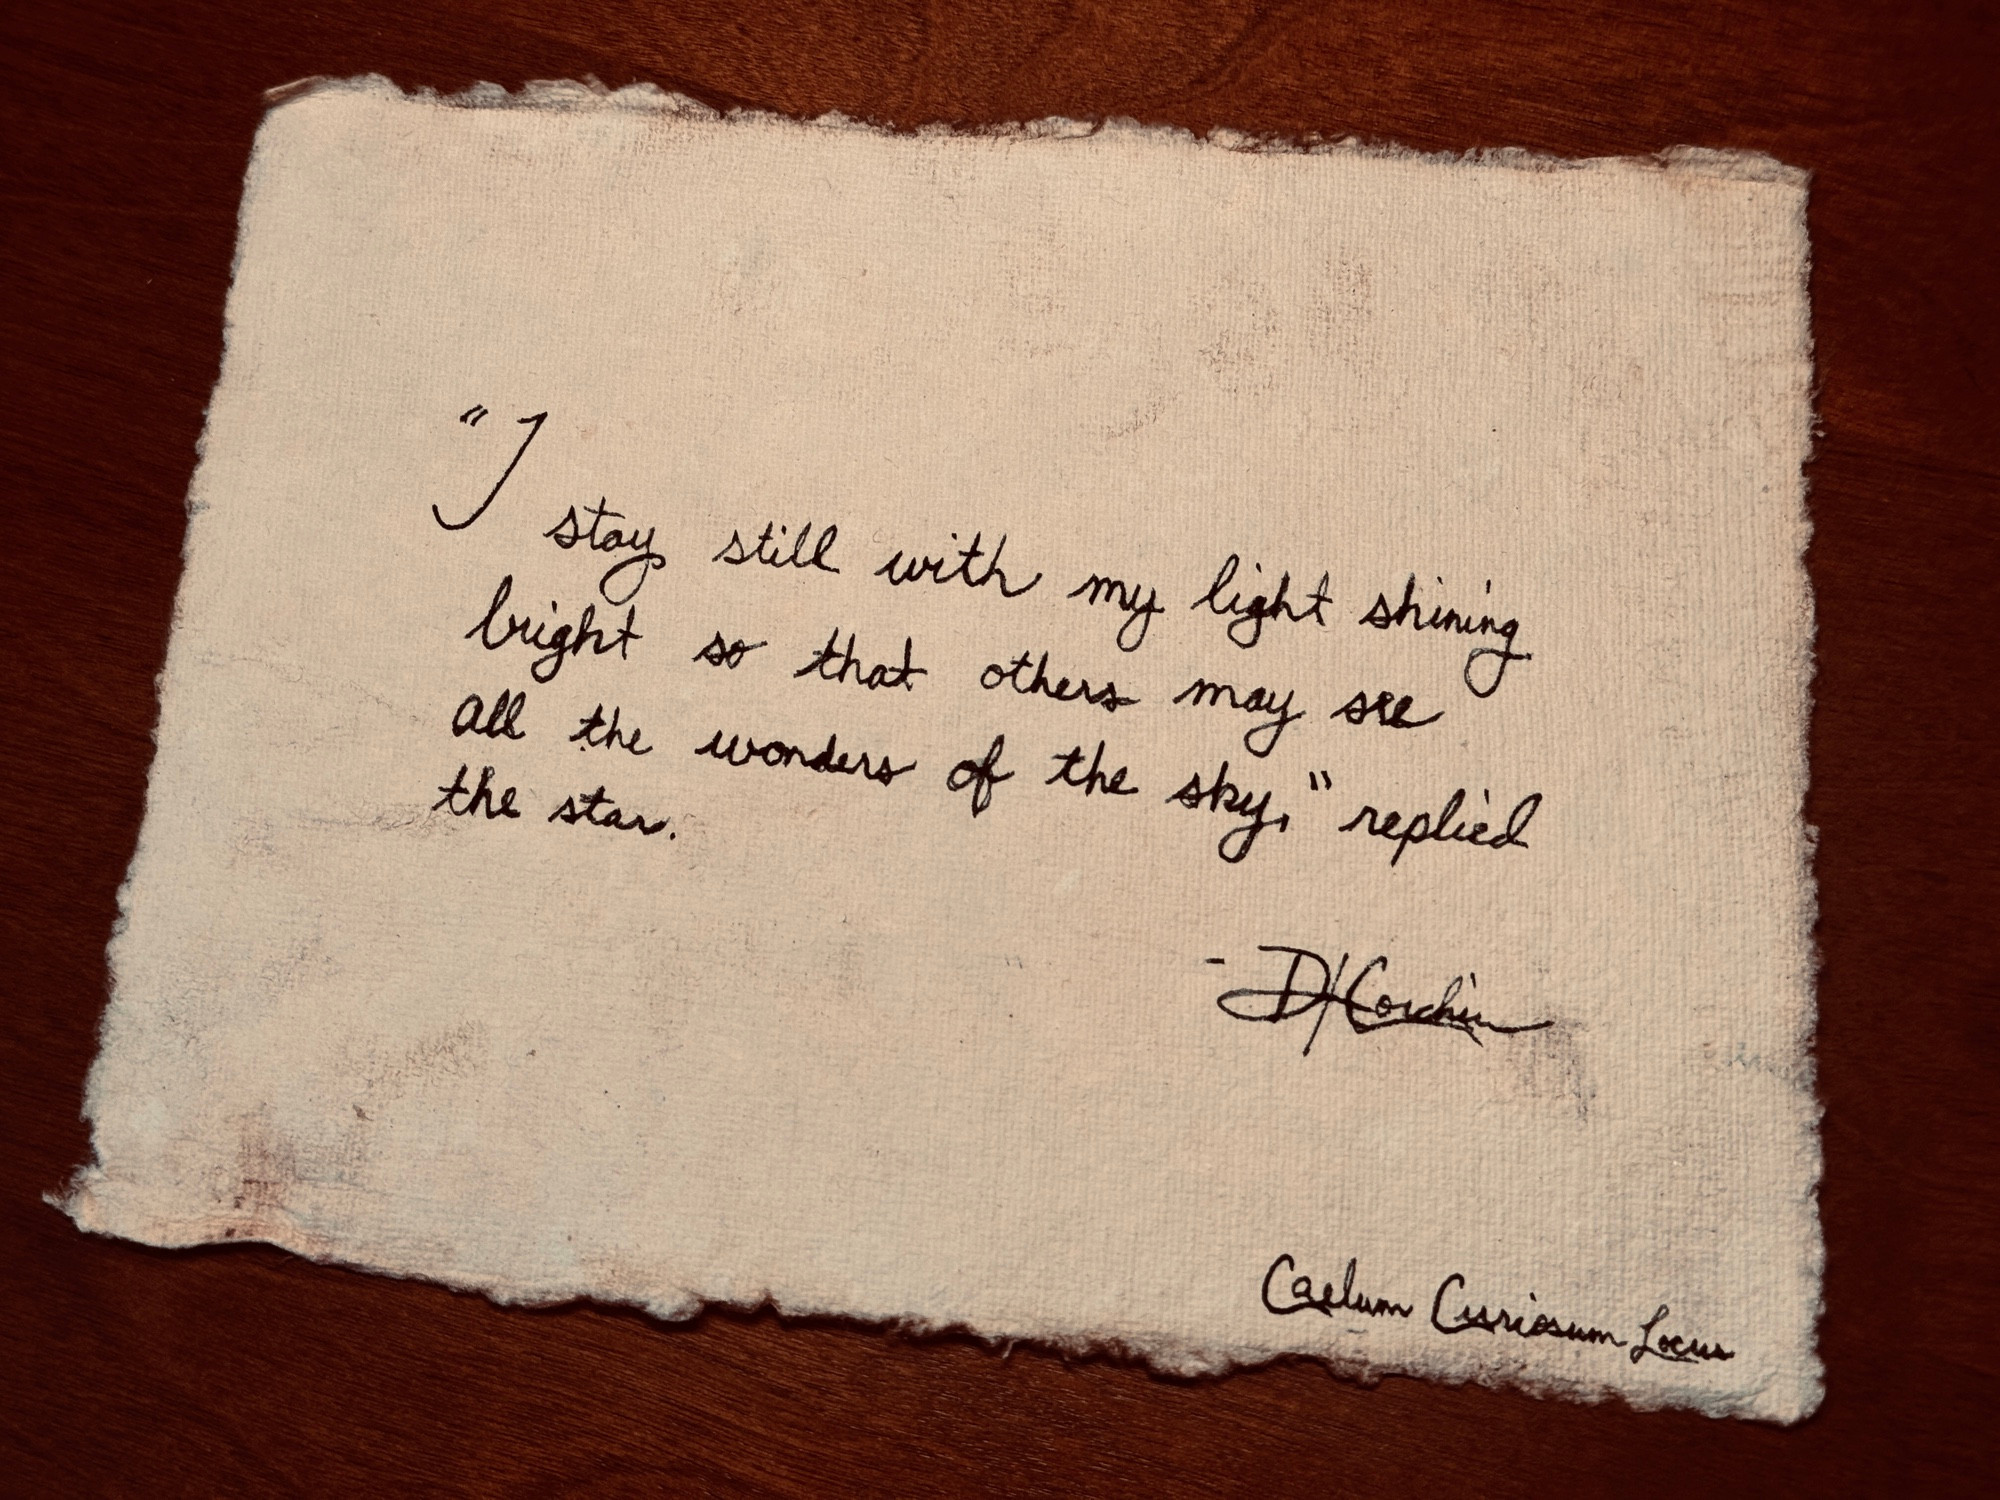 "I
stay still with my light shining
bright so that others may see
all the wonders of the sky," replied
the star.
- D/Corchin
Caelum Curiosum Locus